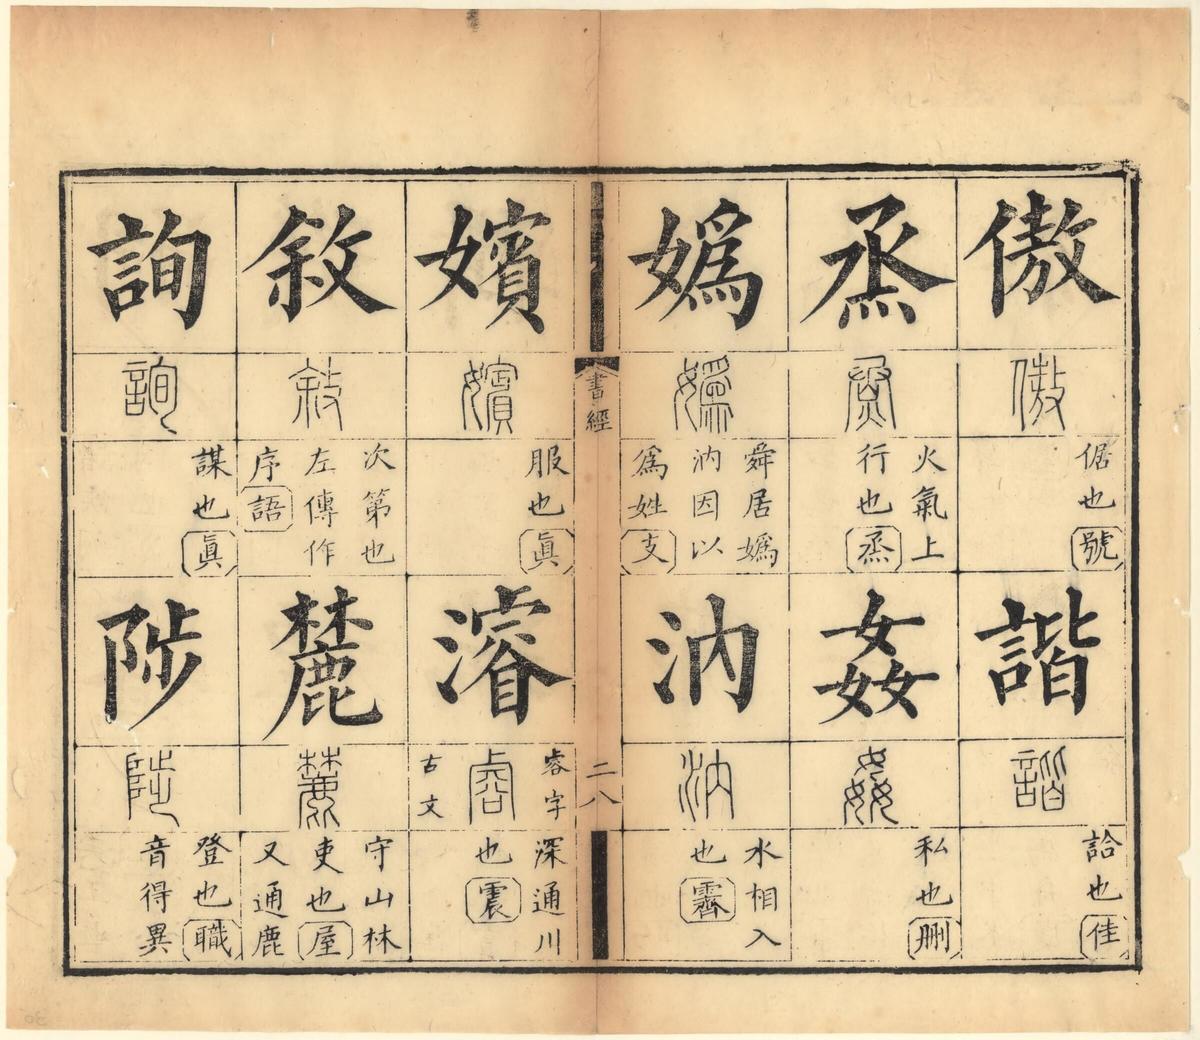 傲
傲
倨也號
諧
諧
詥也佳
烝
烝
火氣上
行也烝
姦
姦
私也刪
嬀
嬀
舜居嬀
汭因以
爲姓支
汭
汭
水相入
也霽
書經
二八
嬪
嬪
服也眞
濬
睿字
古文
深通川
也震
敘
敘
次第也
左傳作
序語
麓
麓
守山林
吏也屋
又通鹿
詢
詢
謀也眞
陟
陟
登也職
音得異